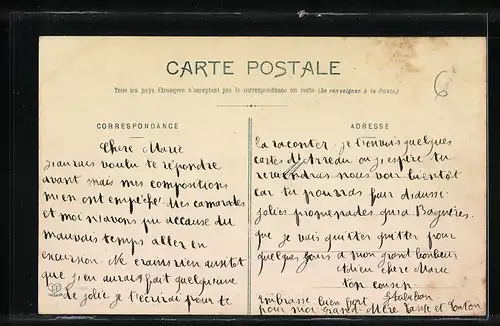 CARTE POSTALE
Tous les pays Etrangers n'acceptent pas la correspondance au recto (Se renseigner à la Poste)
6
CORRESPONDANCE
Chere Marie
j'aurais voulu te répondre
avant mais mes compositions
m'en ont empêché. Mes camarades
et moi n'avons pu accause du
mauvais temps aller en
excursion. Ne crains rien aussitot
que j'en aurais fait quelqu'une
de jolie je t'ecrirai pour te
ADRESSE
la raconter. je t'envois quelques
cartes d'Arreau ou j'espère tu
reviendras nous voir bientôt
car tu pourras faire d'aussi
jolies promenades qu'a Bagnères.
que je vais quitter quitter pour
quelques jours a mon grand bonheur
Adieu chere Marie
ton cousin
Embrasse bien fort
pour moi grand-Mère Tante et Tonton